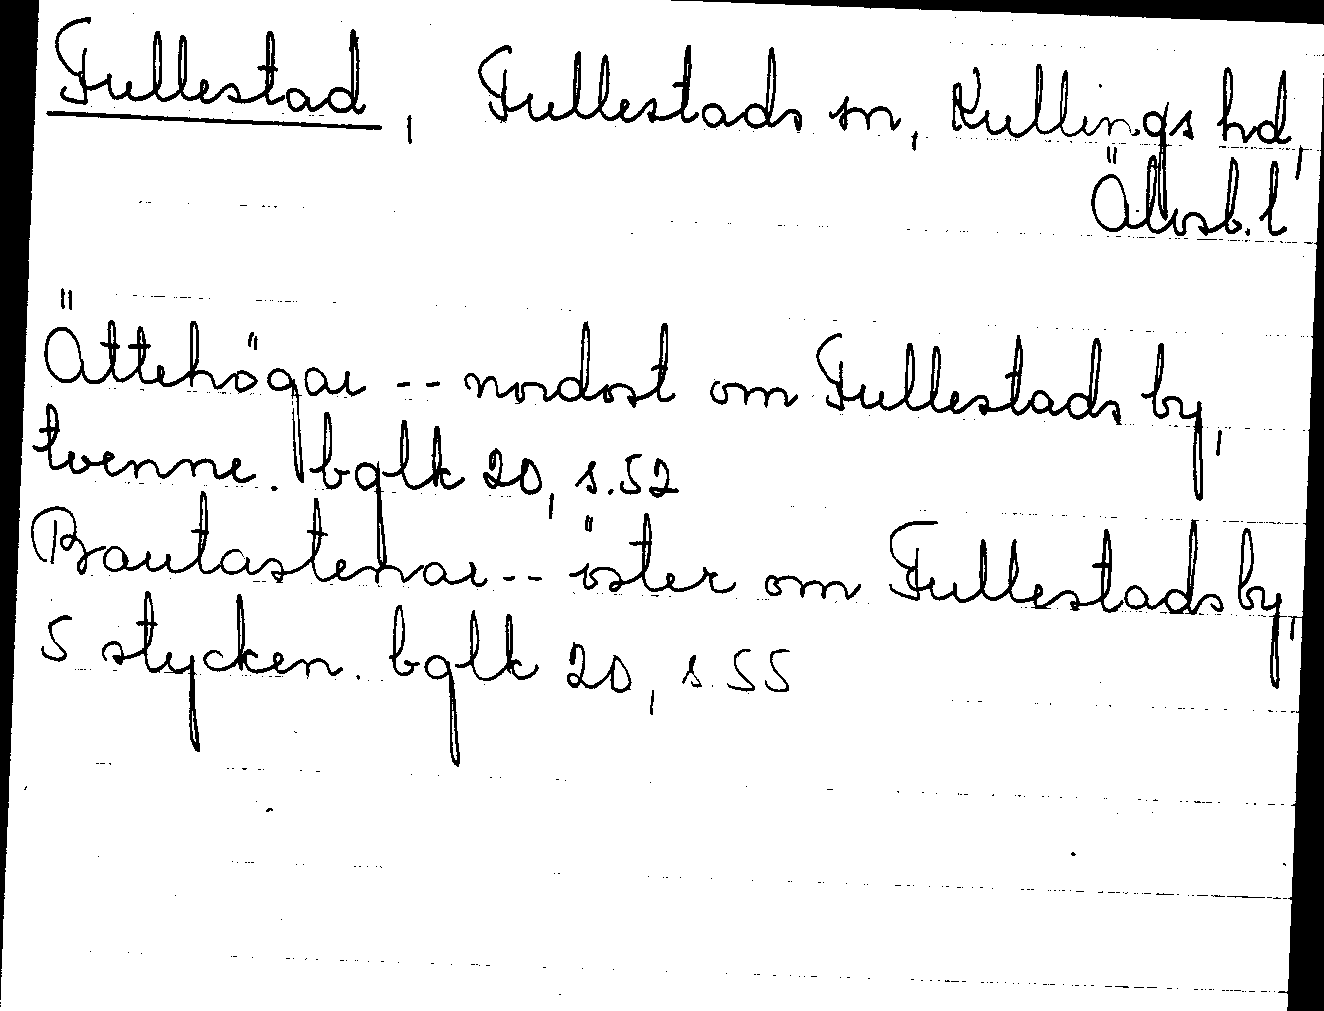 Fullestad, Fullestads sn, Kullings hd,
Älvsb. l
Ättehögar -- nordost om Fullestads by,
tvenne. bglk 20, s. 52
Bautastenar -- öster om Fullestads by,
5 stycken. bglk 20, s. 55